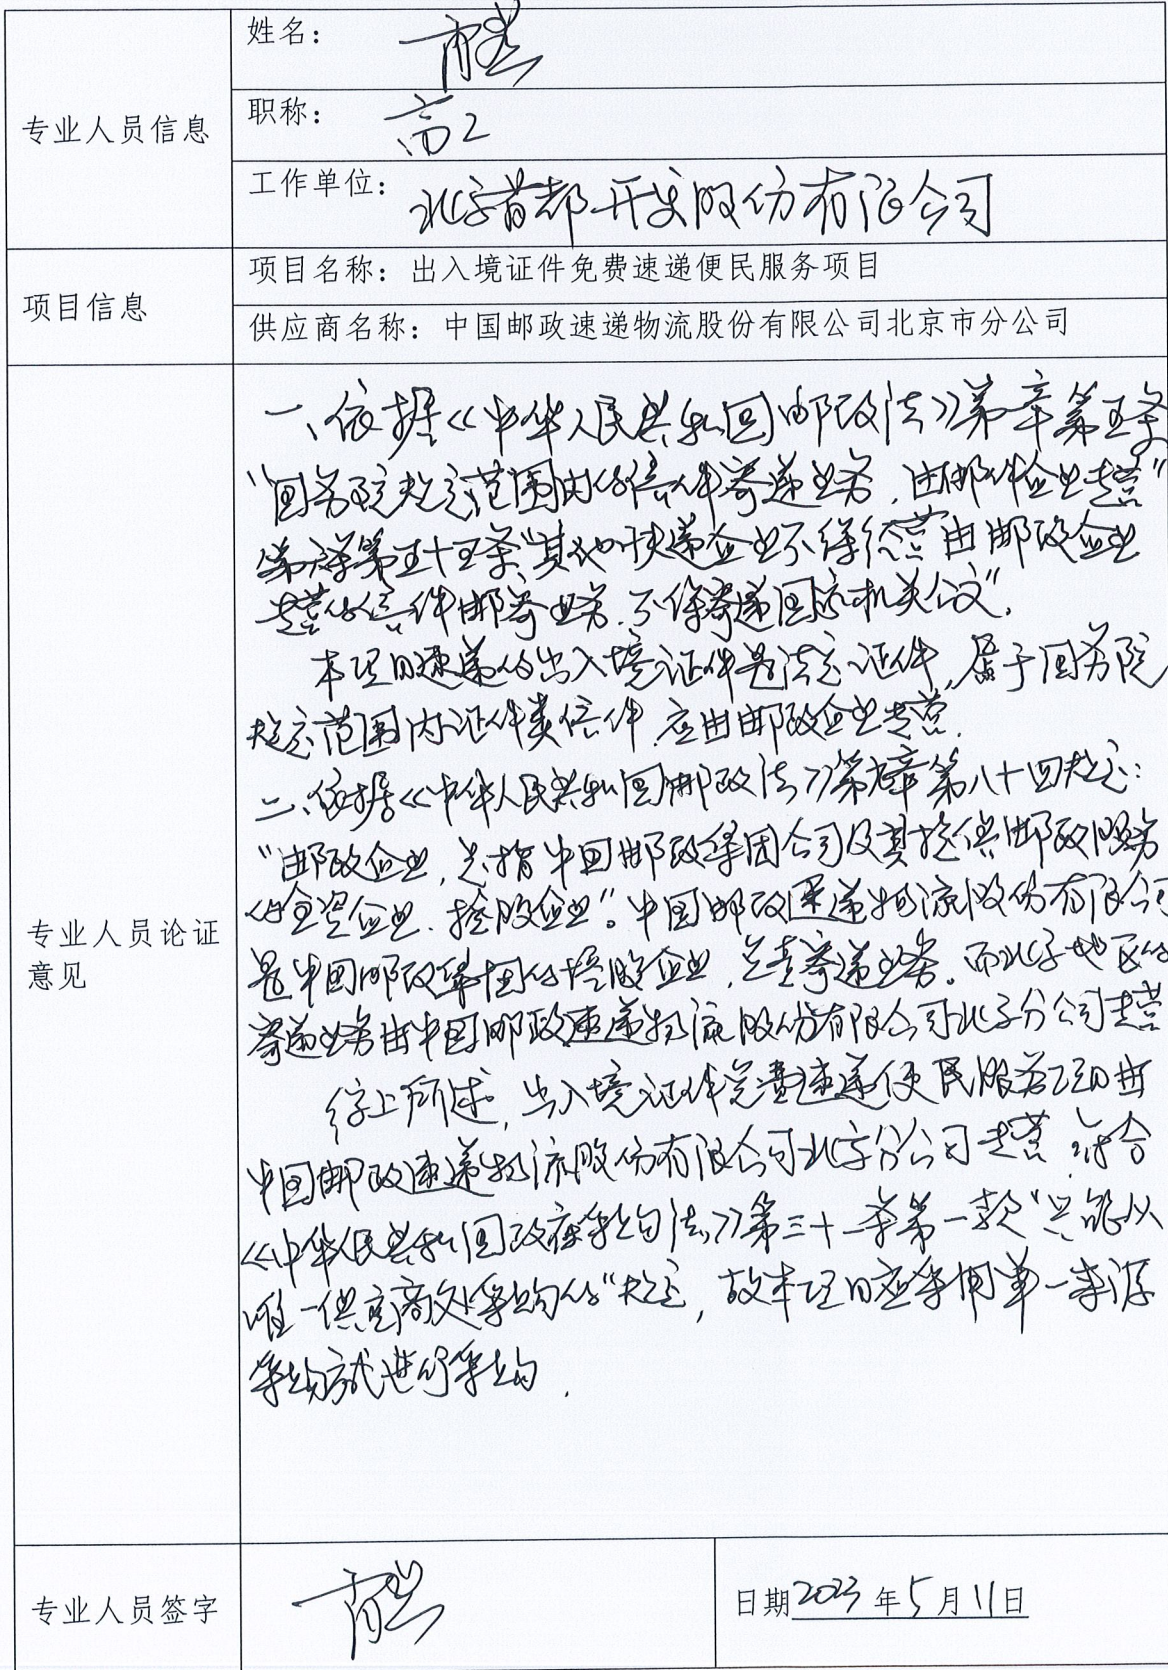 专业人员信息
姓名：
职称： 高工
工作单位： 北京首都开发股份有限公司
项目信息
项目名称：出入境证件免费速递便民服务项目
供应商名称：中国邮政速递物流股份有限公司北京市分公司
专业人员论证
意见
一、依据《中华人民共和国邮政法》第章第五条
“国务院规定范围内的信件寄递业务，由邮件企业专营”
第六章第五十五条“其他快递企业不得经营由邮政企业
专营的信件邮寄业务，不得寄递国家机关公文”。
本项目速递的出入境证件是法定证件，属于国务院
规定范围内证件类信件，应由邮政企业专营。
二、依据《中华人民共和国邮政法》第九章第八十四规定：
“邮政企业，是指中国邮政集团公司及其提供邮政服务
的全资企业、控股企业”。中国邮政速递物流股份有限公司
是中国邮政集团的控股企业，负责寄递业务。而北京地区的
寄递业务由中国邮政速递物流股份有限公司北京分公司专营
综上所述，出入境证件免费速递便民服务项目由
中国邮政速递物流股份有限公司北京分公司专营，符合
《中华人民共和国政府采购法》第三十一条第一款“只能从
唯一供应商处采购的“规定，故本项目应采用单一来源
采购方式进行采购。
专业人员签字
日期2023年5月11日